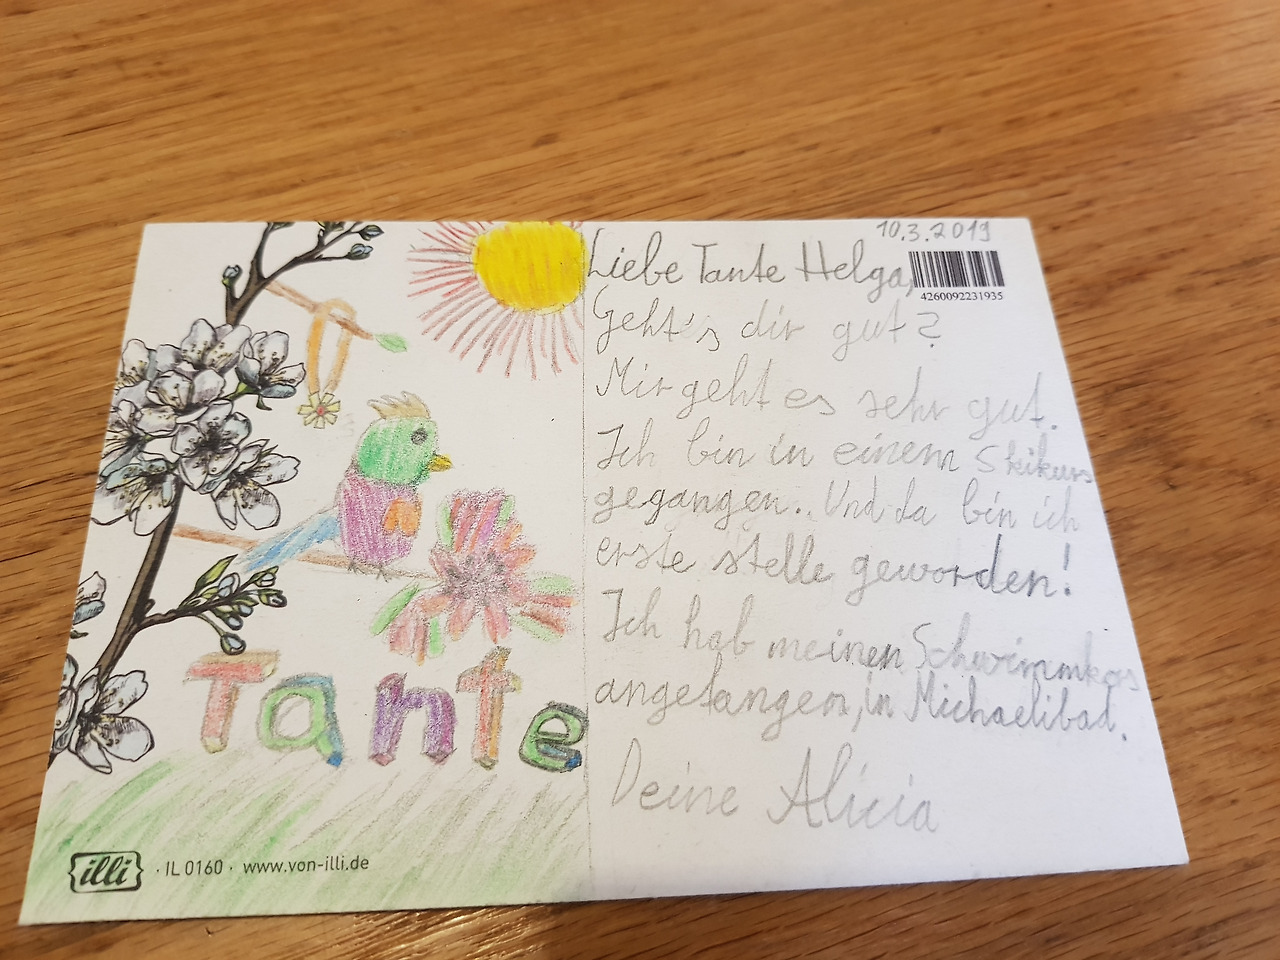 10.3.2019
Liebe Tante Helga,
4260092231935
Geht's dir gut?
Mir geht es sehr gut.
Ich bin in einem Skikurs
gegangen.. Und da bin ich
erste stelle geworden!
Ich hab meinen Schwimmkurs
angefangen, in Michaelibad.
Deine Alicia
Tante
illi · IL 0160 · www.von-illi.de